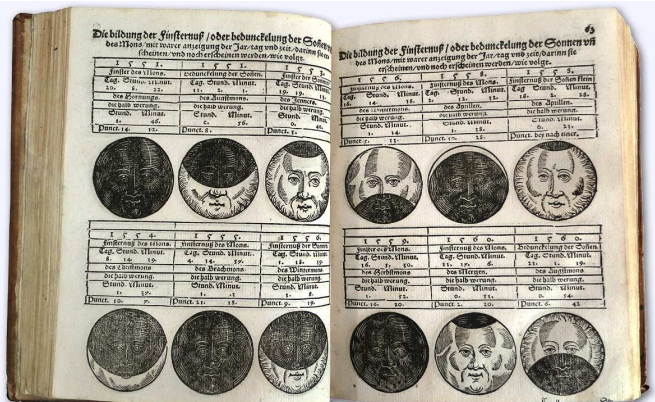 Die bildung der Finsternuß / oder bedunckelung der Soñen
des Mons / mit warer anzeigung der Jar / tag vnd zeit / darinn sie
scheinen / vnd noch erscheinen werden / wie volgt.
1 5 5 1. 1 5 5 1. 1 5 5 3.
Finster des Mons. Bedunckelung der Soñen. Finster der
Tag. Stund. Minut. Tag. Stund. Minut. Tag. Stund.
20. 8. 22. 11. 2. 1. 19. 19.
des Hornungs. des Augstmons. des Jenners.
die halb werung. die halb werung. die halb werung.
Stund. Minut. Stund. Minut. Stund. Minut.
1. 46. 0. 56. 0.
Punct. 14. 12. Punct. 8. Punct.
1 5 5 4. 1 5 5 5. 1 5 5 6.
Finsternuß des Mons. Finsternuß des Mons. Finsternuß der
Tag. Stund. Minut. Tag. Stund. Minut. Tag. Stund. Minut.
8. 14. 19. 4. 14. 1. 18.
des Christmons des Brachmons des Wintermons
die halb werung. die halb werung. die halb werung.
Stund. Minut. Stund. Minut. Stund. Minut.
1. 1. 1.
Punct. 10. Punct. 21. 18. Punct. 9.
63
Die bildung der Finsternuß / oder bedunckelung der Sonnen vñ
des Mons / mit warer anzeigung der Jar / tag vnd zeit / darinn sie
erscheinen / vnd noch erscheinen werden / wie volgt.
1 5 5 6. 1 5 5 8. 1 5 5 8.
Finsternuß des Mons. Finsternuß des Mons. Finsternuß der Soñen klein
Tag. Stund. Minut. Tag. Stund. Minut. Tag. Stund. Minut.
16. 14. 2. 12. 18.
des Wintermons des Aprillen. des Aprillen.
die halb werung die halb werung die halb werung.
Stund. Minut. Stund. Minut. Stund. Minut.
1. 14. 1. 18. 0.
Punct. Punct. Punct. bey nach einer.
1 5 5 9. 1 5 6 0. 1 5 6 0.
Finsternuß des Mons. Finsternuß des Mons. Bedunckelung der Soñen.
Tag. Stund. Minut. Tag. Stund. Minut. Tag. Stund. Minut.
16. 11. 21. 1.
des Herbstmons des Mertzen. des Augstmons
die halb werung. die halb werung die halb werung.
Stund. Minut. Stund. Minut. Stund. Minut.
1. 52. 0. 0. 54.
Punct. 20. Punct. 2. 20. Punct. 6. 42